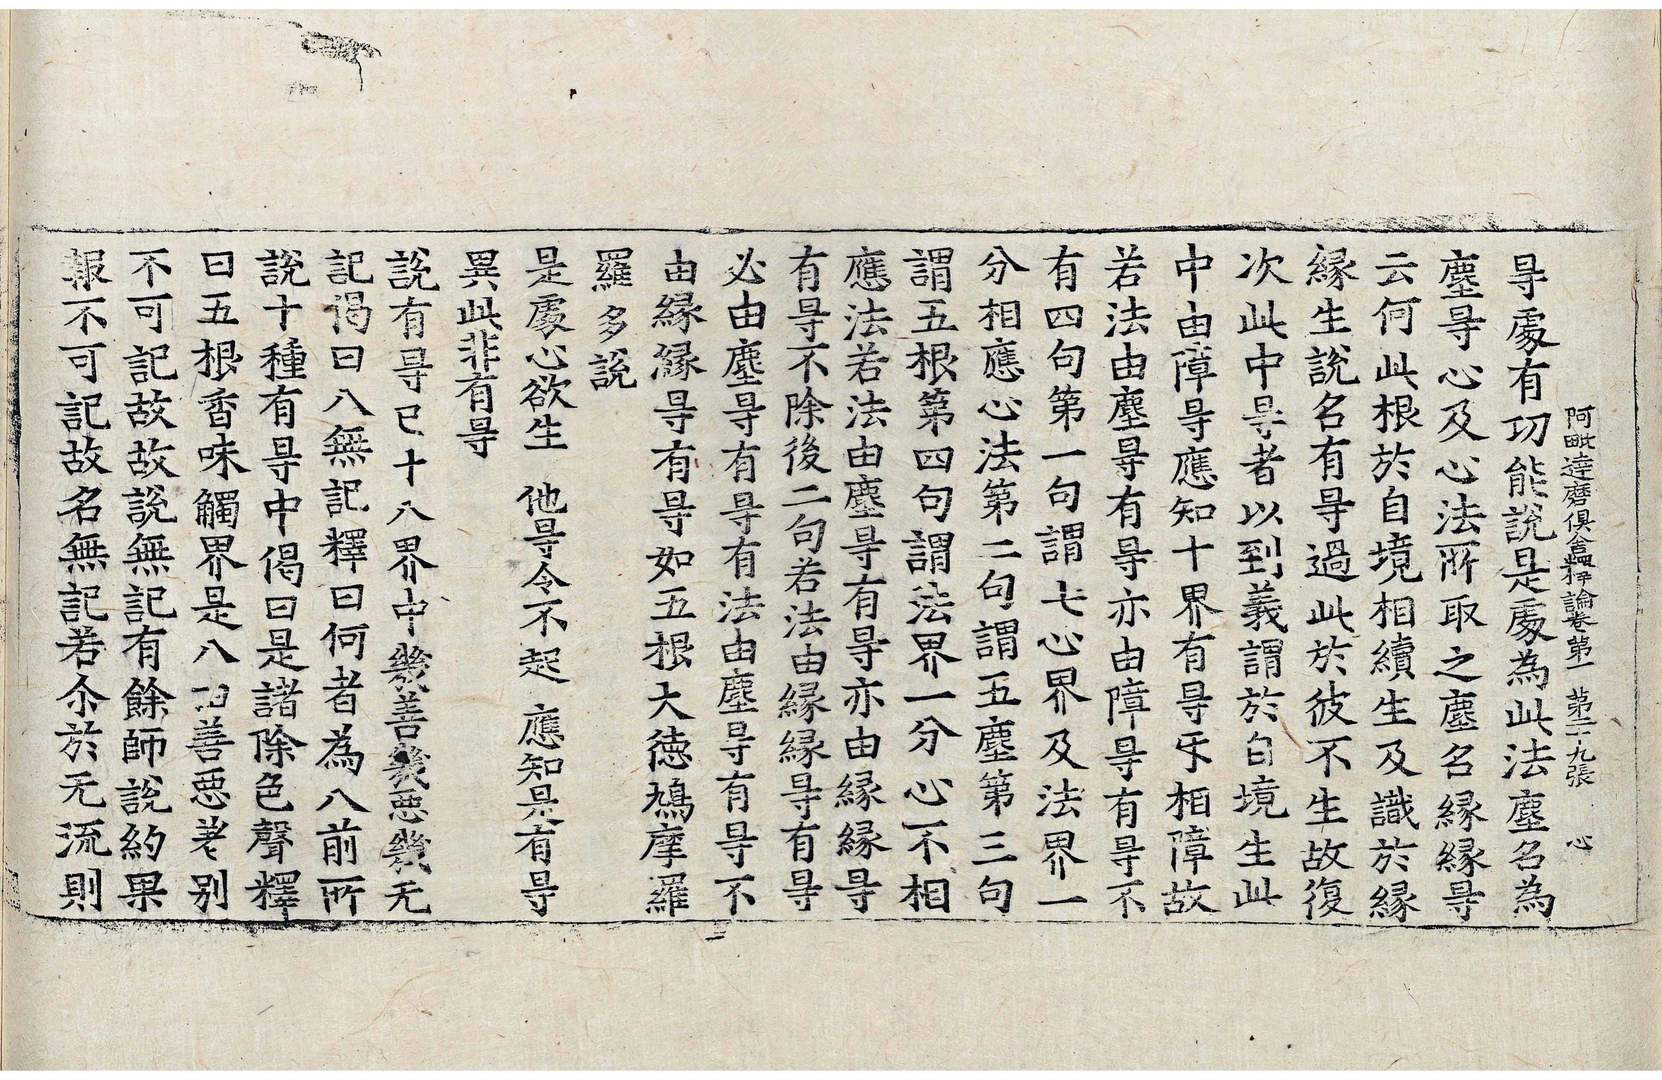 阿毗達磨俱舍釋論卷第一　第二十九張　心
㝵處有功能說是處為此法塵名為
塵㝵心及心法所取之塵名緣緣㝵
云何此根於自境相續生及識於緣
緣生說名有㝵過此於彼不生故復
次此中㝵者以到義謂於自境生此
中由障㝵應知十界有㝵牙相障故
若法由塵㝵有㝵亦由障㝵有㝵不
有四句第一句謂七心界及法界一
分相應心法第二句謂五塵第三句
謂五根第四句謂法界一分心不相
應法若法由塵㝵有㝵亦由緣緣㝵
有㝵不除後二句若法由緣緣㝵有㝵
必由塵㝵有㝵有法由塵㝵有㝵不
由緣緣㝵有㝵如五根大德鳩摩羅
羅多說
是處心欲生　他㝵令不起　應知是有㝵
異此非有㝵
說有㝵已十八界中幾善幾惡幾无
記偈曰八無記釋曰何者為八前所
說十種有㝵中偈曰是諸除色聲釋
曰五根香味觸界是八由善惡差別
不可記故故說無記有餘師說約果
報不可記故名無記若尒於无流則